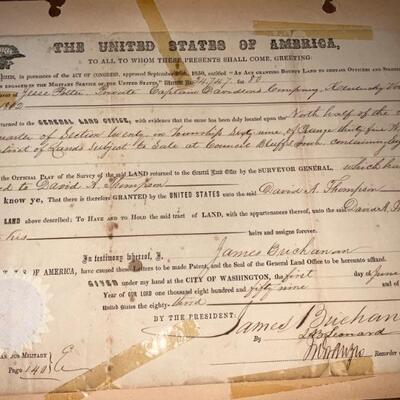 THE UNITED STATES OF AMERICA,
TO ALL TO WHOM THESE PRESENTS SHALL COME, GREETING:
in pursuance of the ACT OF CONGRESS, approved September 28th, 1850, entitled "AN ACT GRANTING BOUNTY LAND TO CERTAIN OFFICERS AND SOLDIERS
ENGAGED IN THE MILITARY SERVICE OF THE UNITED STATES," Warrant No. 24,747 for 80
of Jesse Potter, Private Captain Davidson's Company, Kentucky
returned to the GENERAL LAND OFFICE, with evidence that the same has been duly located upon the North half of the
quarter of Section twenty, in Township Sixty nine, of Range
District of Lands Subject to Sale at Council Bluffs Iowa containing
OFFICIAL PLAT of the Survey of the said LAND returned to the General Land Office by the SURVEYOR GENERAL, which
ed to David A. Thompson
know ye, That there is therefore GRANTED by the UNITED STATES unto the said David A. Thompson
LAND above described; TO HAVE AND TO HOLD the said tract of LAND, with the appurtenances thereof, unto the said David A. Th
his heirs and assigns forever.
In testimony whereof, I, James Buchanan
OF AMERICA, have caused these Letters to be made Patent, and the Seal of the General Land Office to be hereunto affixed.
GIVEN under my hand at the CITY OF WASHINGTON, the first day of June
YEAR OF OUR LORD one thousand eight hundred and fifty nine and of the
United States the eighty third
BY THE PRESIDENT: James Buchan
By J. B. Leonard
Recorder of
MILITARY
Page 140